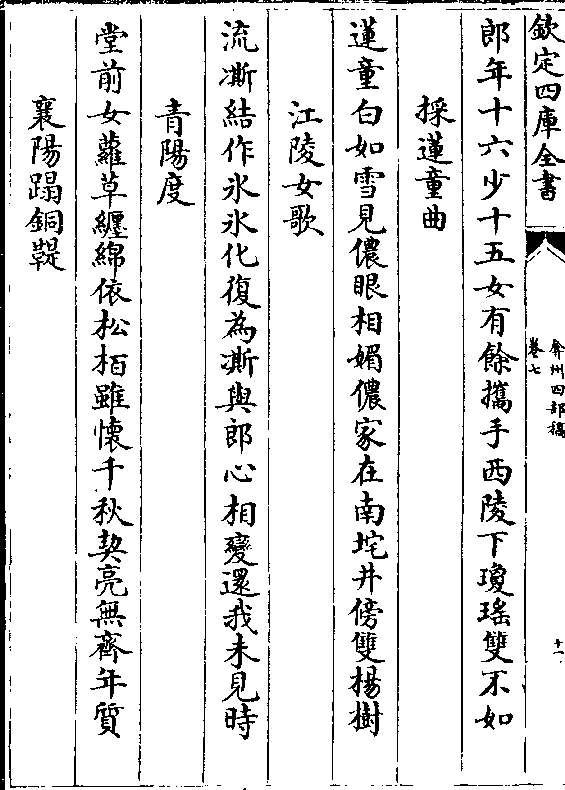 欽定四庫全書
弇州四部稿
卷七
十一
郎年十六少十五女有餘攜手西陵下瓊瑤雙不如
採蓮童曲
蓮童白如雪見儂眼相媚儂家在南垞井傍雙楊樹
江陵女歌
流澌結作氷氷化復為澌與郎心相變還我未見時
青陽度
堂前女蘿草纏綿依松栢雖懷千秋契亮無齊年質
襄陽蹋銅鞮